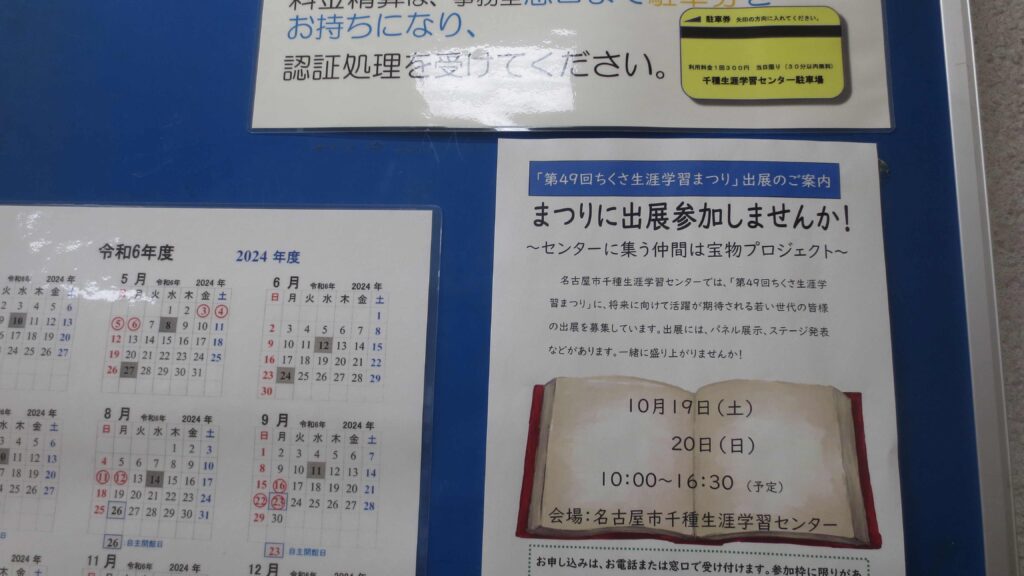 お持ちになり、
認証処理を受けてください。
駐車券 矢印の方向に入れてください。
利用料金1回300円 当日限り (30分以内無料)
千種生涯学習センター駐車場
「第49回ちくさ生涯学習まつり」出展のご案内
まつりに出展参加しませんか!
～センターに集う仲間は宝物プロジェクト～
名古屋市千種生涯学習センターでは、「第49回ちくさ生涯学
習まつり」に、将来に向けて活躍が期待される若い世代の皆様
の出展を募集しています。出展には、パネル展示、ステージ発表
などがあります。一緒に盛り上がりませんか!
10月19日(土)
20日(日)
10:00～16:30 (予定)
会場:名古屋市千種生涯学習センター
お申し込みは、お電話または窓口で受け付けます。参加枠に限りがあ
令和6年度 2024 年度
2024 年
火 水 木 金 土
2 3 4 5 6
9 10 11 12 13
16 17 18 19 20
23 24 25 26 27
5 月 令和6年 2024 年
火 水 木 金 土
1 2 3 4
5 6 7 8 9 10 11
12 13 14 15 16 17 18
19 20 21 22 23 24 25
26 27 28 29 30 31
6 月 令和6年 2024 年
日 火 水 木 金 土
1
2 3 4 5 6 7 8
9 10 11 12 13 14 15
16 17 18 19 20 21 22
23 24 25 26 27 28 29
30
2024 年
木 金 土
4 5 6
11 12 13
17 18 19 20
24 25 26 27
8 月 令和6年 2024 年
日 月 火 水 木 金 土
1 2 3
4 5 6 7 8 9 10
11 12 13 14 15 16 17
18 19 20 21 22 23 24
25 26 27 28 29 30 31
26 自主開館日
9 月 令和6年 2024 年
日 月 火 水 木 金 土
1 2 3 4 5 6 7
8 9 10 11 12 13 14
15 16 17 18 19 20 21
22 23 24 25 26 27 28
29 30
23 自主開館日
2024 年
11 月 令和6年 2024 年
12 月 令和6年 2024 年